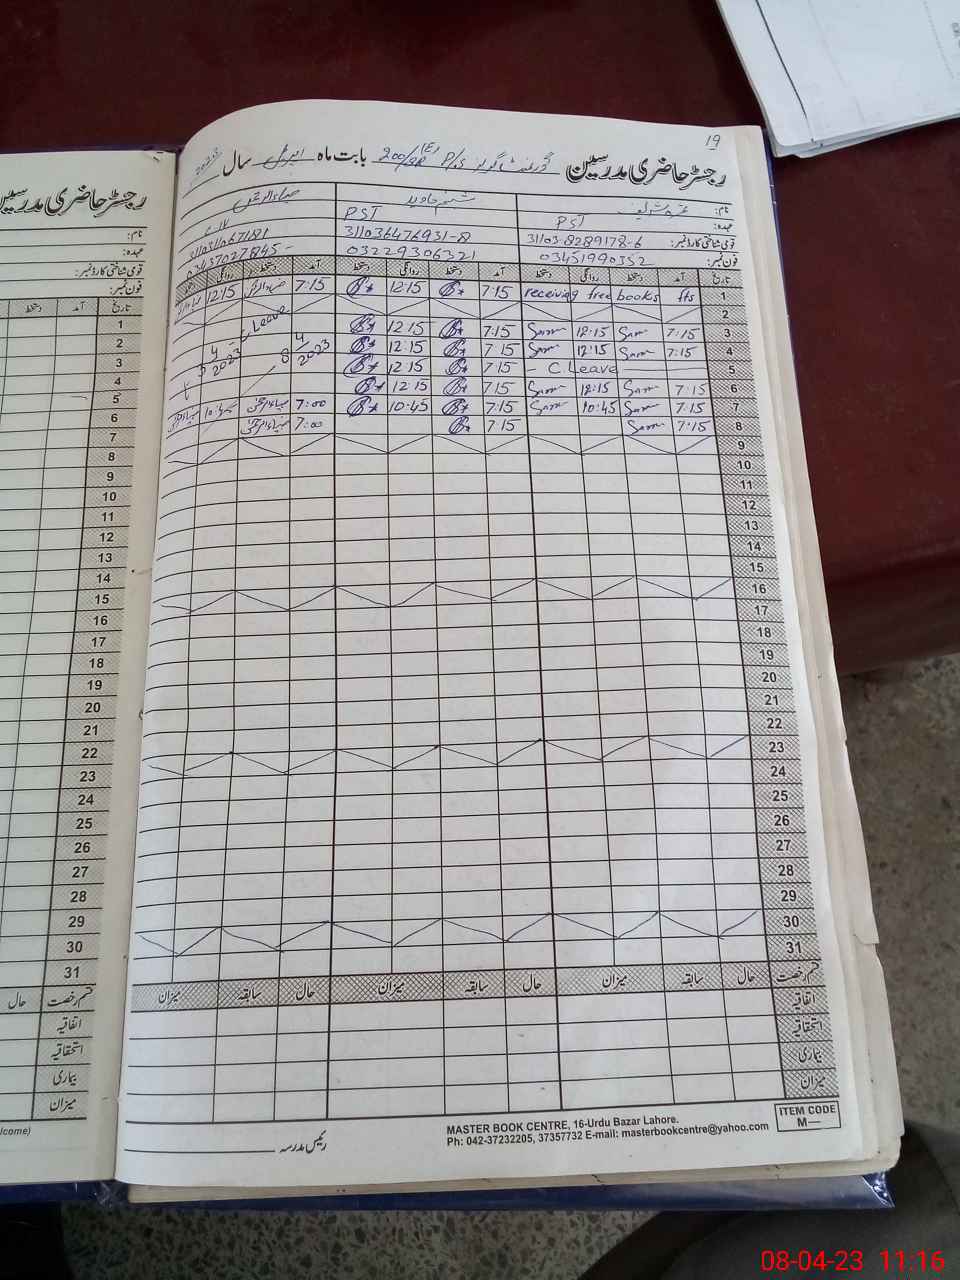 19
رجسٹر حاضری مدرسین گورنمنٹ گرلز P/S 200/9R (E) بابت ماہ اپریل سال 2023
نام:
عہدہ: PST PST
قومی شناختی کارڈ نمبر: 31103-8289178-6 311036476931-8 311031067181
فون نمبر: 03451990352 03229306321 03437027845-
تاریخ آمد دستخط روانگی دستخط آمد دستخط روانگی دستخط آمد دستخط روانگی دستخط
1 receiving free books fts 7:15 12:15 7:15 12:15
2
3 7:15 12:15 7:15 12:15 C Leave
4 7:15 12:15 7:15 12:15
5 - C. Leave 7:15 12:15
6 7:15 12:15 7:15 12:15
7 7:15 10:45 7:15 10:45 7:00
8 7:15 7:15 7:00
9
10
11
12
13
14
15
16
17
18
19
20
21
22
23
24
25
26
27
28
29
30
31
قسم رخصت حال سابقہ میزان حال سابقہ میزان حال سابقہ میزان
اتفاقیہ
استحقاقیہ
بیماری
میزان
رئیس مدرسہ
MASTER BOOK CENTRE, 16-Urdu Bazar Lahore.
Ph: 042-37232205, 37357732 E-mail: masterbookcentre@yahoo.com
ITEM CODE
M—
رجسٹر حاضری مدرسین
نام:
عہدہ:
قومی شناختی کارڈ نمبر:
فون نمبر:
تاریخ آمد دستخط
1
2
3
4
5
6
7
8
9
10
11
12
13
14
15
16
17
18
19
20
21
22
23
24
25
26
27
28
29
30
31
قسم رخصت حال
اتفاقیہ
استحقاقیہ
بیماری
میزان
lcome)
08-04-23 11:16